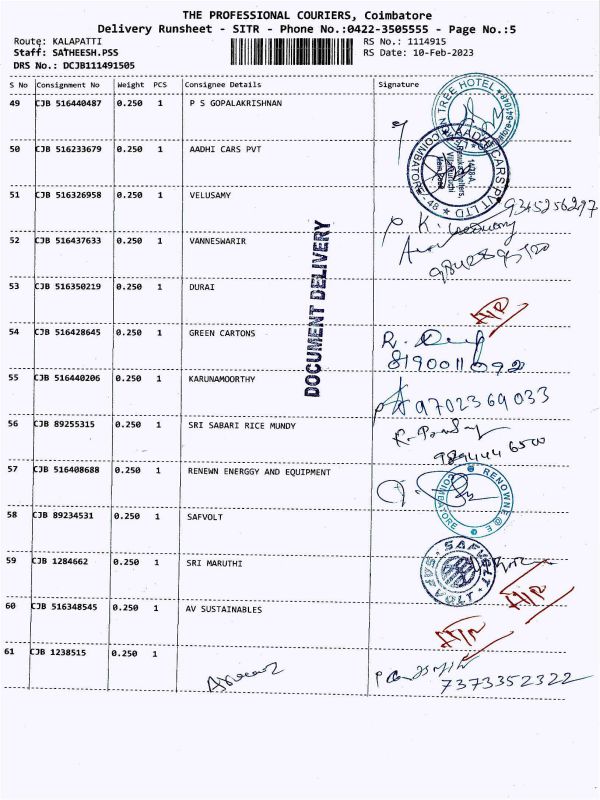 THE PROFESSIONAL COURIERS, Coimbatore
Delivery Runsheet - SITR - Phone No.:0422-3505555 - Page No.:5
Route: KALAPATTI RS No.: 1114915
Staff: SATHEESH.PSS RS Date: 10-Feb-2023
DRS No.: DCJB111491505
S No Consignment No Weight PCS Consignee Details Signature
49 CJB 516440487 0.250 1 P S GOPALAKRISHNAN
TREE HOTEL
50 CJB 516233679 0.250 1 AADHI CARS PVT
AADHI CARS PVT LTD COIMBATORE - 48
51 CJB 516326958 0.250 1 VELUSAMY
9345256297
52 CJB 516437633 0.250 1 VANNESWARIR
53 CJB 516350219 0.250 1 DURAI
DOCUMENT DELIVERY
54 CJB 516428645 0.250 1 GREEN CARTONS
8190011092
55 CJB 516440206 0.250 1 KARUNAMOORTHY
9702369033
56 CJB 89255315 0.250 1 SRI SABARI RICE MUNDY
9894446500
57 CJB 516408688 0.250 1 RENEWN ENERGGY AND EQUIPMENT
58 CJB 89234531 0.250 1 SAFVOLT
SAFVOLT
59 CJB 1284662 0.250 1 SRI MARUTHI
60 CJB 516348545 0.250 1 AV SUSTAINABLES
61 CJB 1238515 0.250 1
7373352322